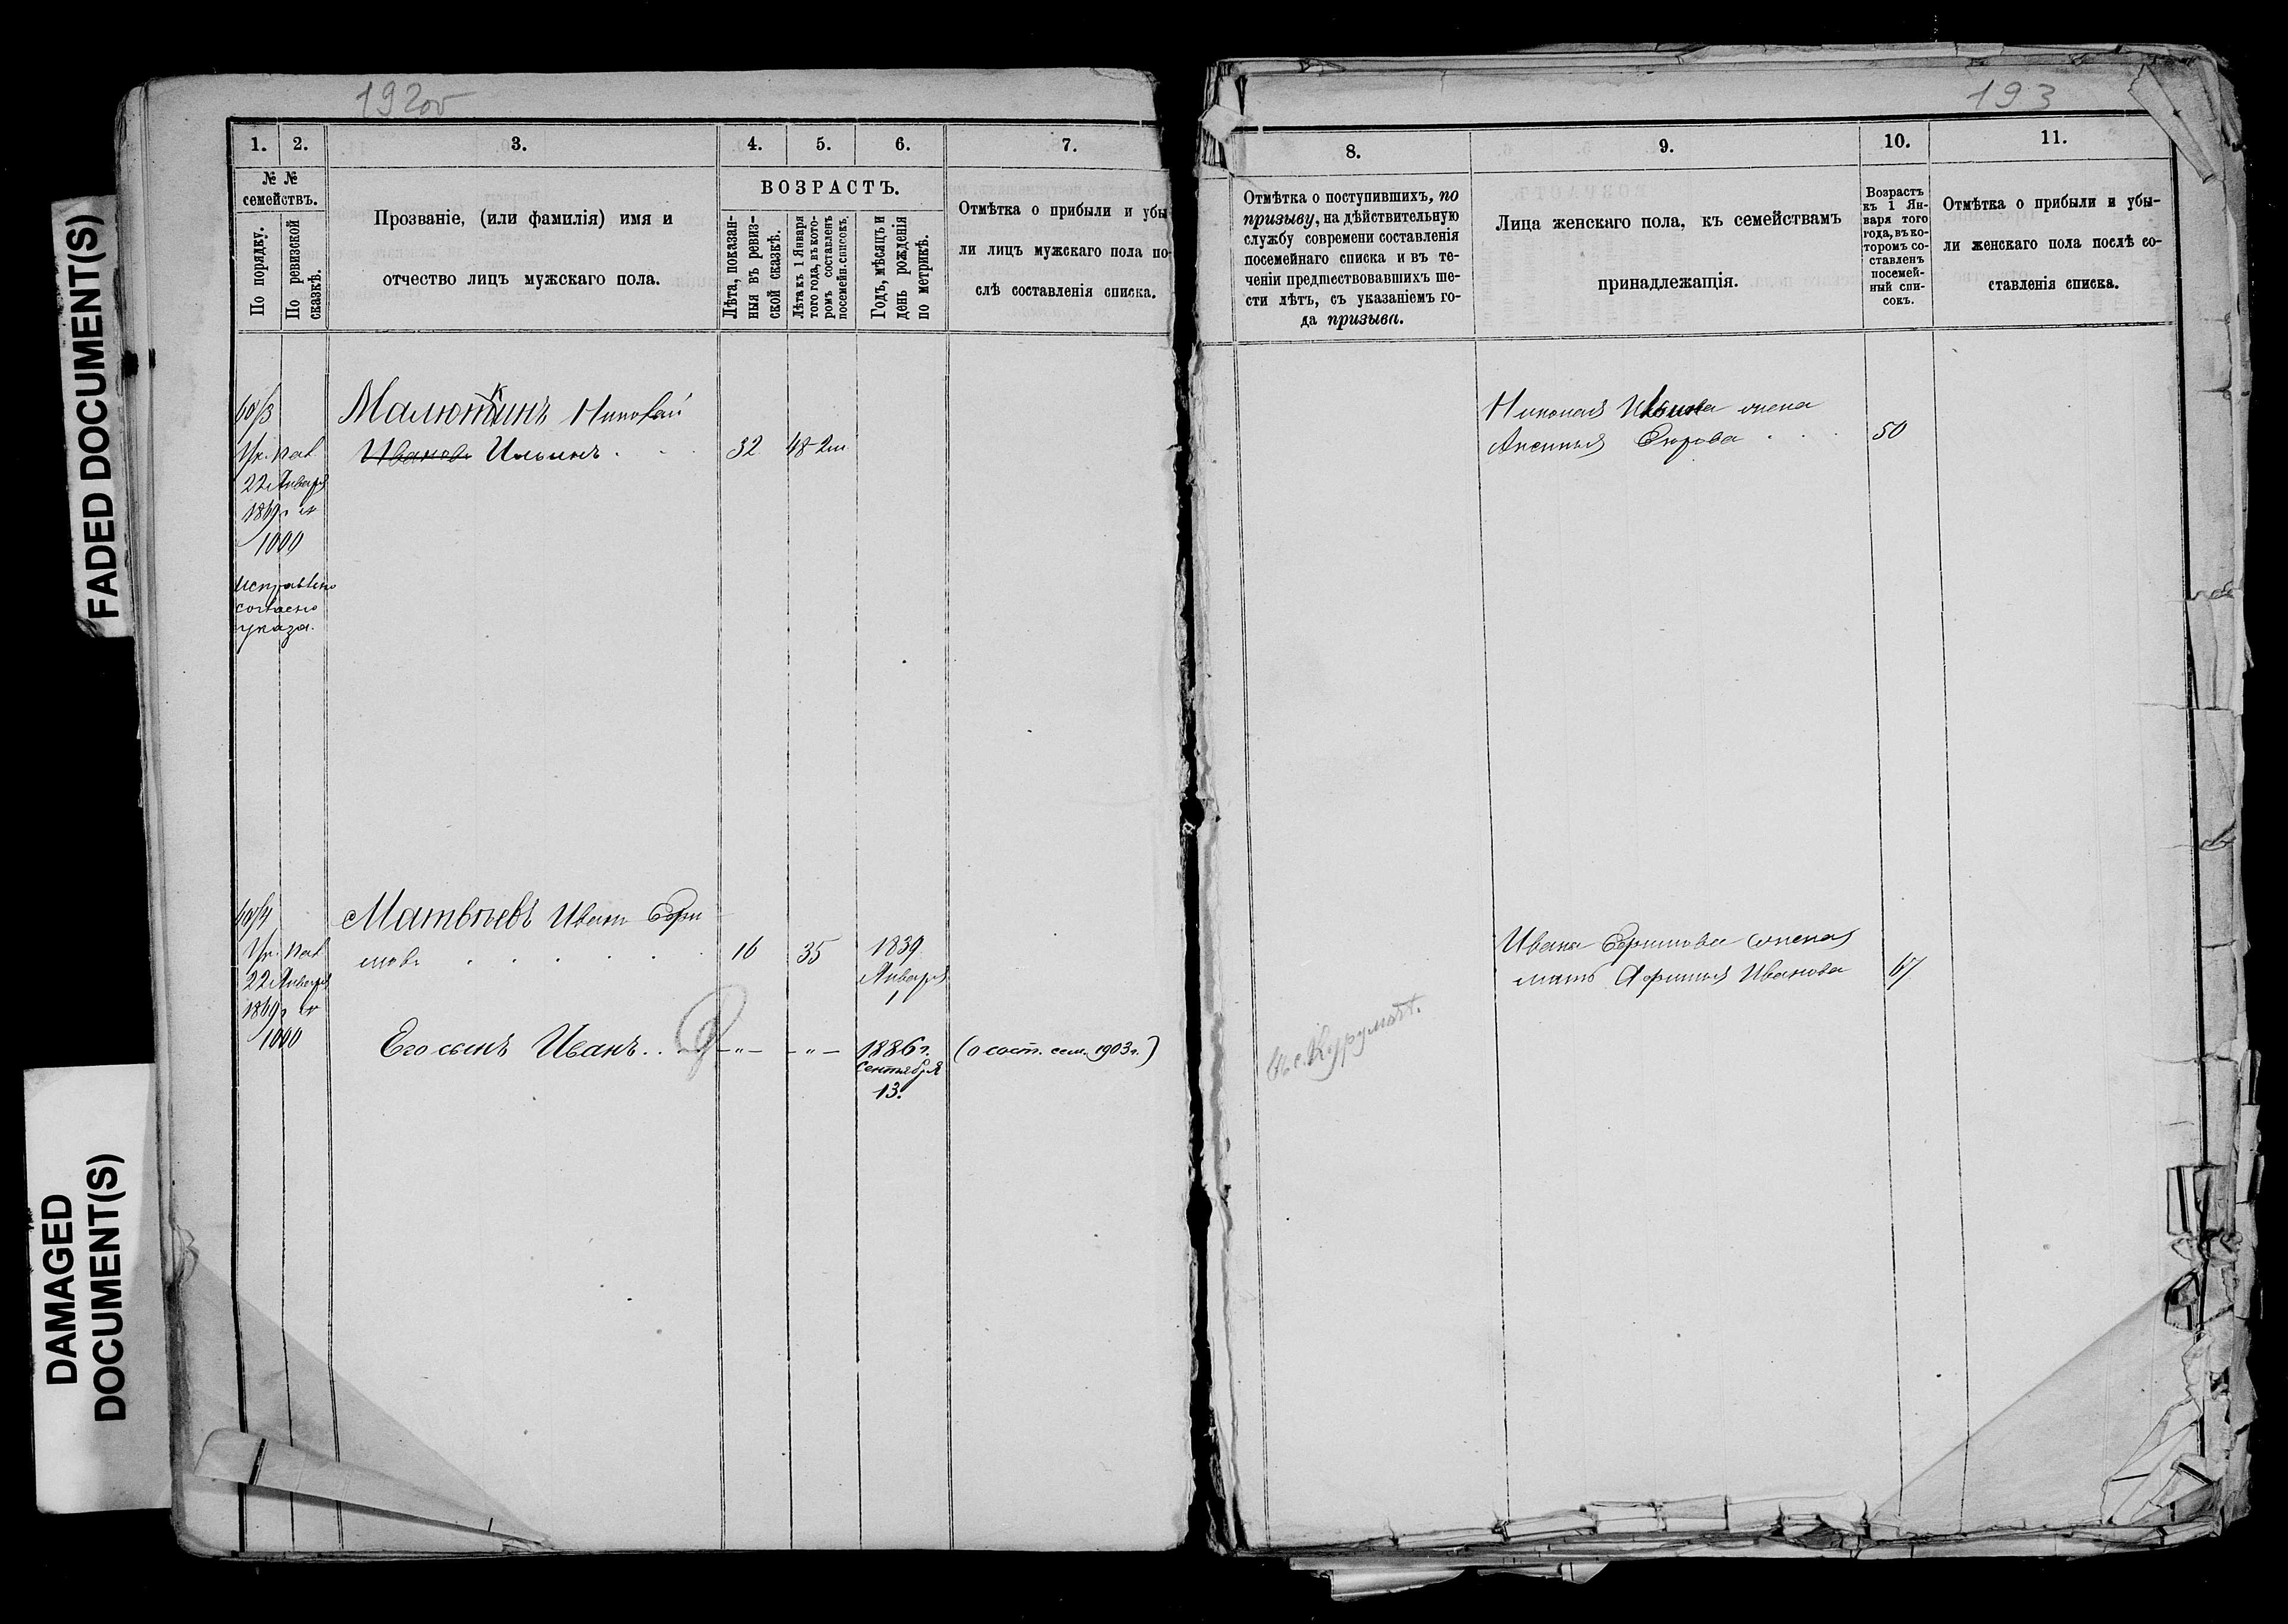 FADED DOCUMENT(S)
DAMAGED
DOCUMENT(S)
192об
1. 2. 3. 4. 5. 6. 7.
№ №
семействъ.
По порядку.
По ревизской
сказкѣ.
Прозваніе, (или фамилія) имя и
отчество лицъ мужскаго пола.
ВОЗРАСТЪ.
Лѣта, показан-
ныя въ ревиз-
ской сказкѣ.
Лѣта къ 1 Января
того года, въ кото-
ромъ составленъ
посемейн. списокъ.
Годъ, мѣсяцъ и
день рожденія
по метрикѣ.
Отмѣтка о прибыли и убы
ли лицъ мужскаго пола по-
слѣ составленія списка.
Малюткинъ Николай
Ивановъ Ильинъ 32 48-2м
22 Января
1869г. №
1000
Исправлено
согласно
указа.
Матвѣевъ Иванъ
16 35 1839
Января
1
22 Января
1869г. №
1000
Его сынъ Иванъ . . -"- -"- 1886г. (о сост. сем. 1903г.)
Сентября
13.
193
8. 9. 10. 11.
Отмѣтка о поступившихъ, по
призыву, на дѣйствительную
службу современи составленія
посемейнаго списка и въ те-
ченіи предшествовавшихъ ше-
сти лѣтъ, съ указаніемъ го-
да призыва.
Лица женскаго пола, къ семействамъ
принадлежащія.
Возрастъ
къ 1 Ян-
варя того
года, въ ко-
торомъ со-
ставленъ
посемей-
ный спи-
сокъ.
Отмѣтка о прибыли и убы-
ли женскаго пола послѣ со-
ставленія списка.
Николая Ильина жена
Аксинья 50
Ивана
мать Иванова 67